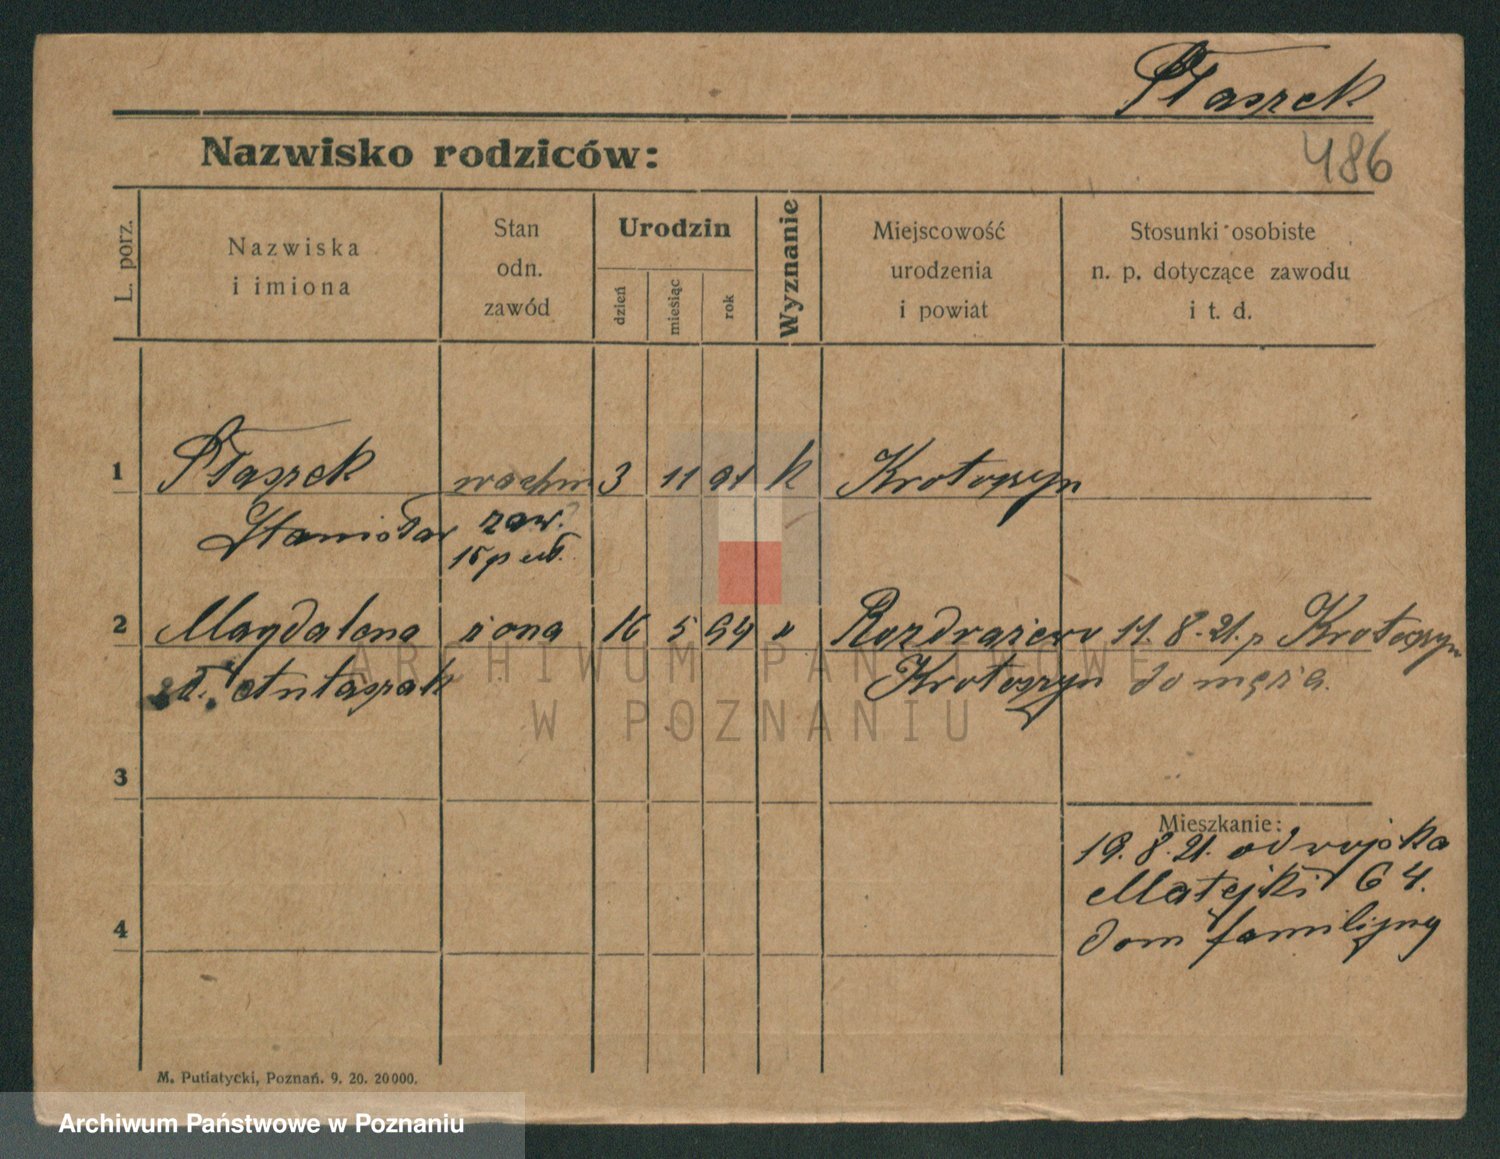 Ptaszek
486
Nazwisko rodziców:
L. porz.
Nazwiska
i imiona
Stan
odn.
zawód
Urodzin
dzień
miesiąc
rok
Wyznanie
Miejscowość
urodzenia
i powiat
Stosunki osobiste
n. p. dotyczące zawodu
i t. d.
1 Ptaszek wachm 3 11 91 k Krotoszyn
Stanisław zaw.
15 p uł.
2 Magdalena żona 16 5 94 " Rozdrażewo 11.8.21. z Krotoszyn
Krotoszyn do męża.
3
Mieszkanie:
19.8.21. od wojska
Matejki 64.
dom familijny
4
M. Putiatycki, Poznań. 9. 20. 20000.
ARCHIWUM PAŃSTWOWE
W POZNANIU
Archiwum Państwowe w Poznaniu